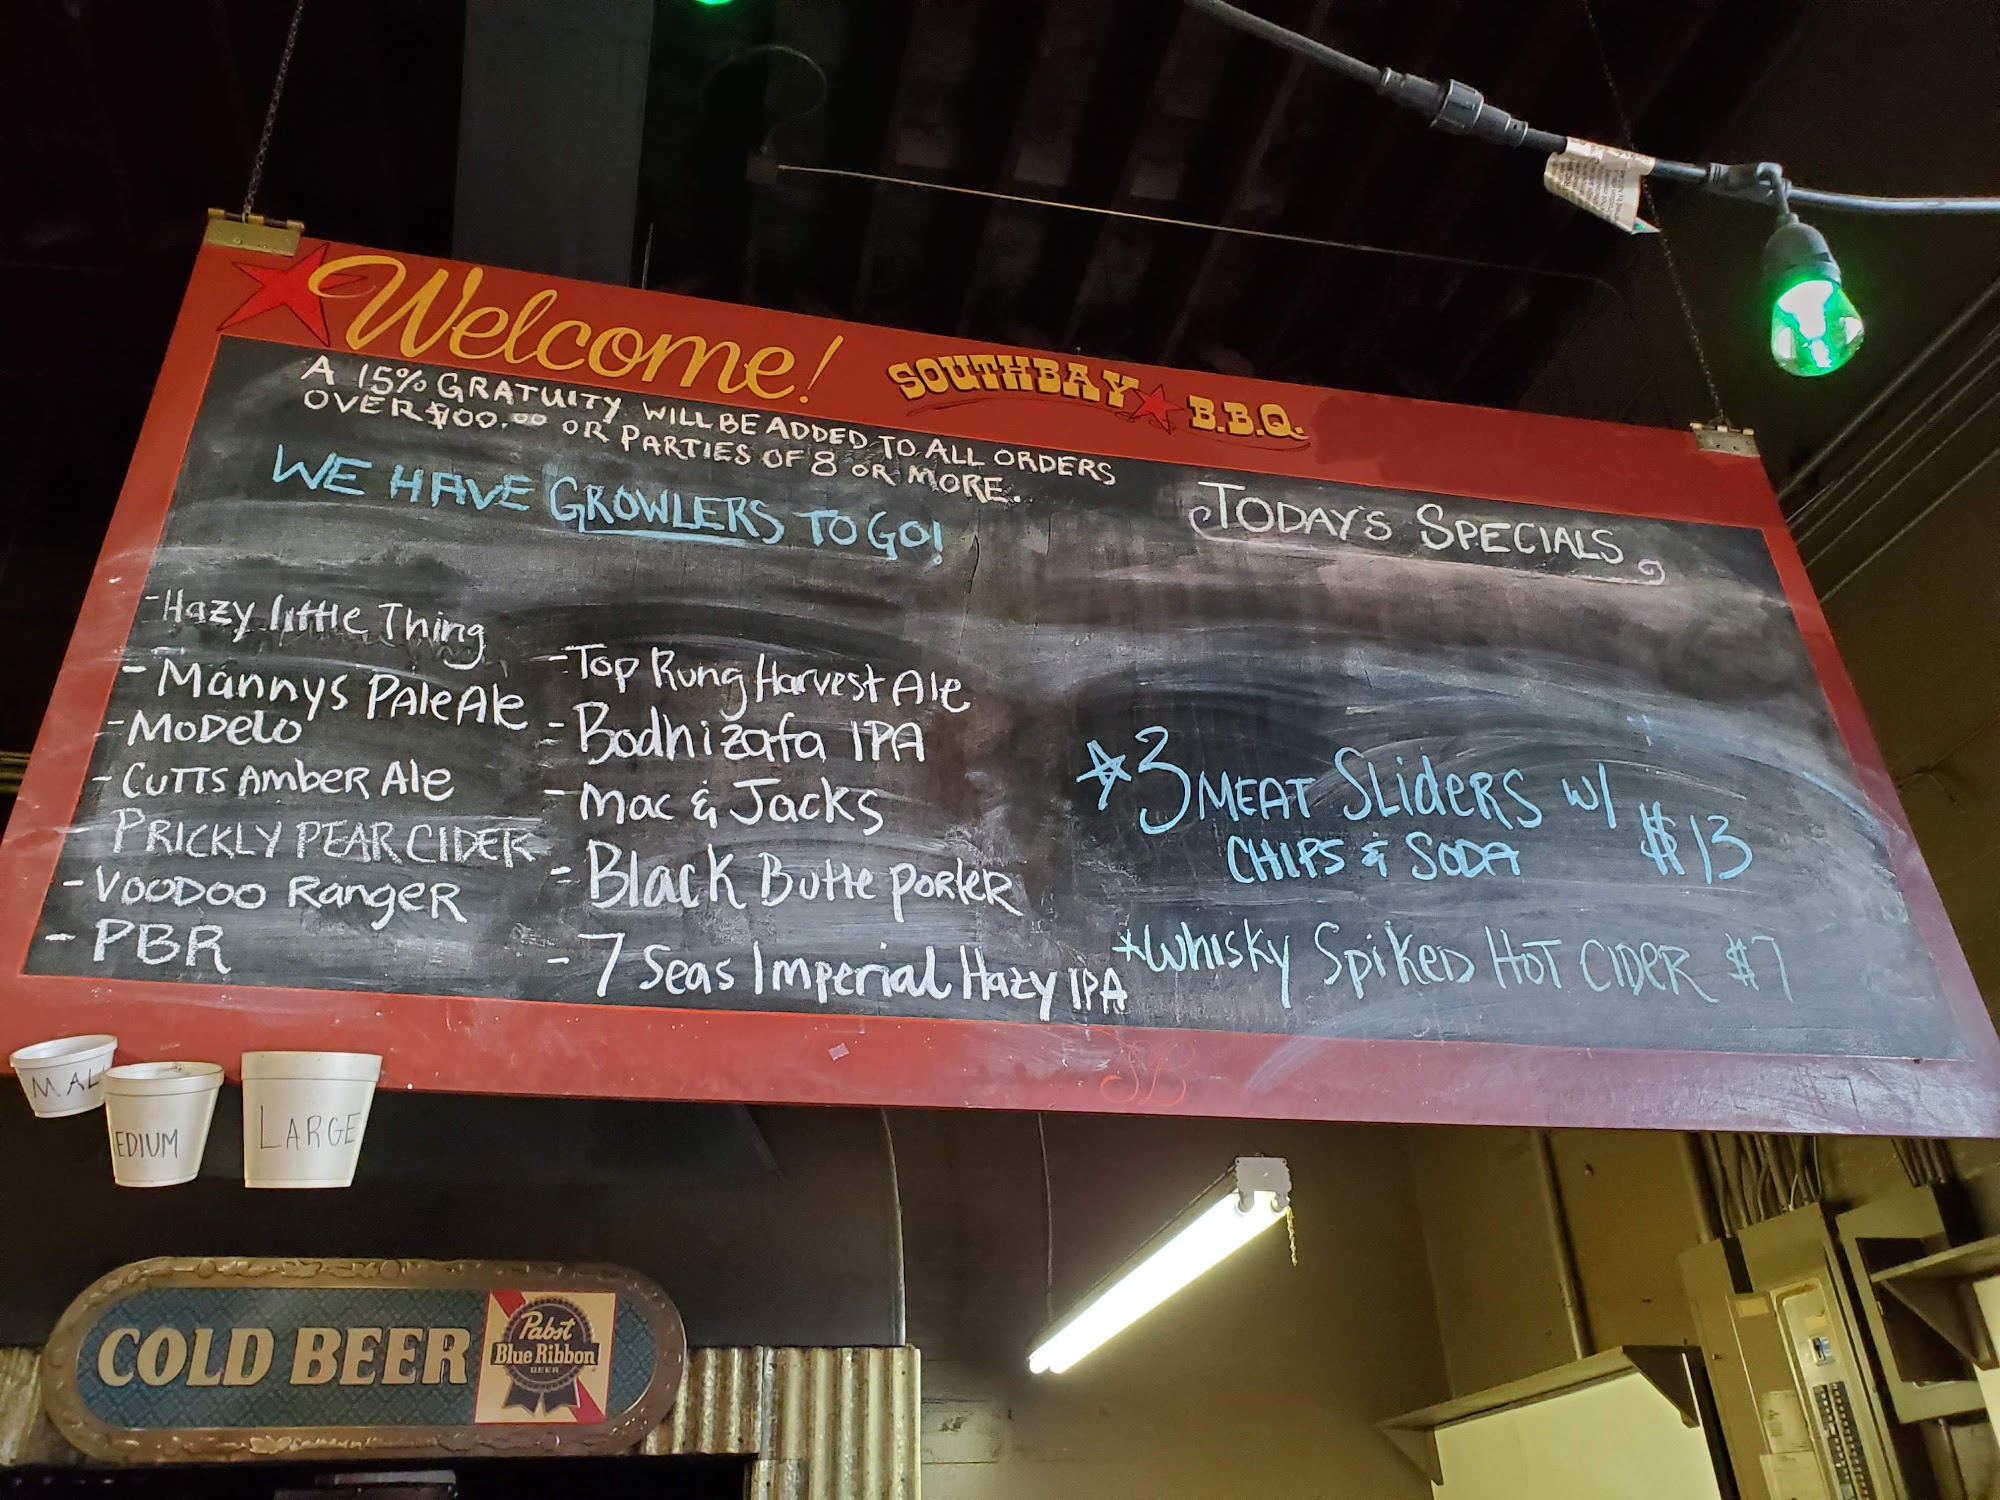 Welcome!
SOUTHBAY B.B.Q.
A 15% GRATUITY WILL BE ADDED TO ALL ORDERS
OVER $100.00 OR PARTIES OF 8 OR MORE.
WE HAVE GROWLERS TO GO!
- Hazy little Thing
- Mannys Pale Ale
- Modelo
- Cutts Amber Ale
- PRICKLY PEAR CIDER
- VOODOO Ranger
- PBR
- Top Rung Harvest Ale
- Bodhizafa IPA
- Mac & Jacks
- Black Butte Porter
- 7 Seas Imperial Hazy IPA
TODAY'S SPECIALS
*3 MEAT SLiDERS w/
CHIPS & SODA $13
*Whisky Spiked Hot CIDER $7
MAL
EDIUM
LARGE
COLD BEER
Pabst
Blue Ribbon
BEER